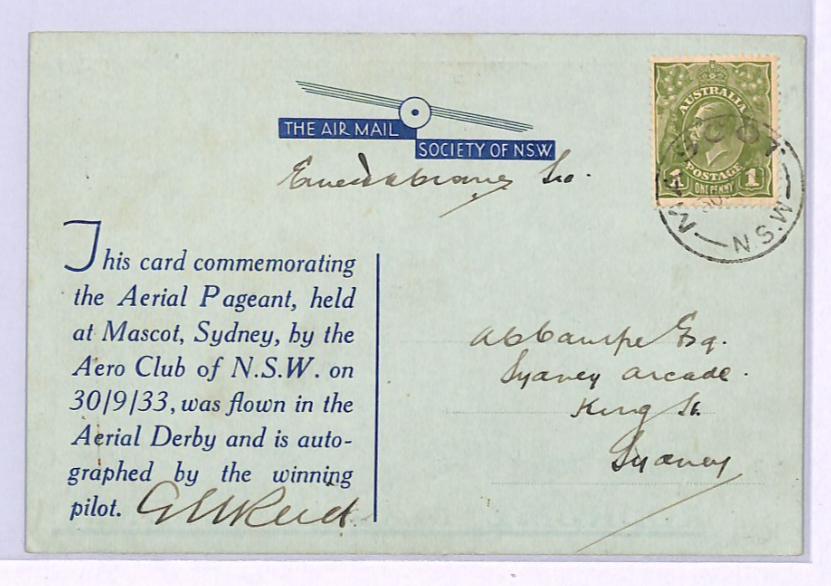 THE AIR MAIL
SOCIETY OF N.S.W.
AUSTRALIA
POSTAGE
1 ONE PENNY 1
MASCOT
N.S.W
This card commemorating
the Aerial Pageant, held
at Mascot, Sydney, by the
Aero Club of N.S.W. on
30/9/33, was flown in the
Aerial Derby and is auto-
graphed by the winning
pilot.
Esq.
Sydney Arcade.
King St.
Sydney